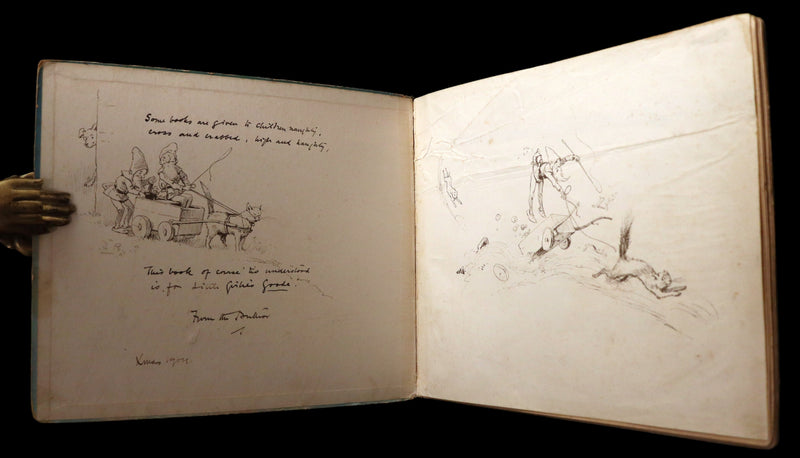 Some books are given to children naughty,
cross and crabbed, high and haughty,
This book of course 'tis understood
is for Little Goode.
From the
Xmas